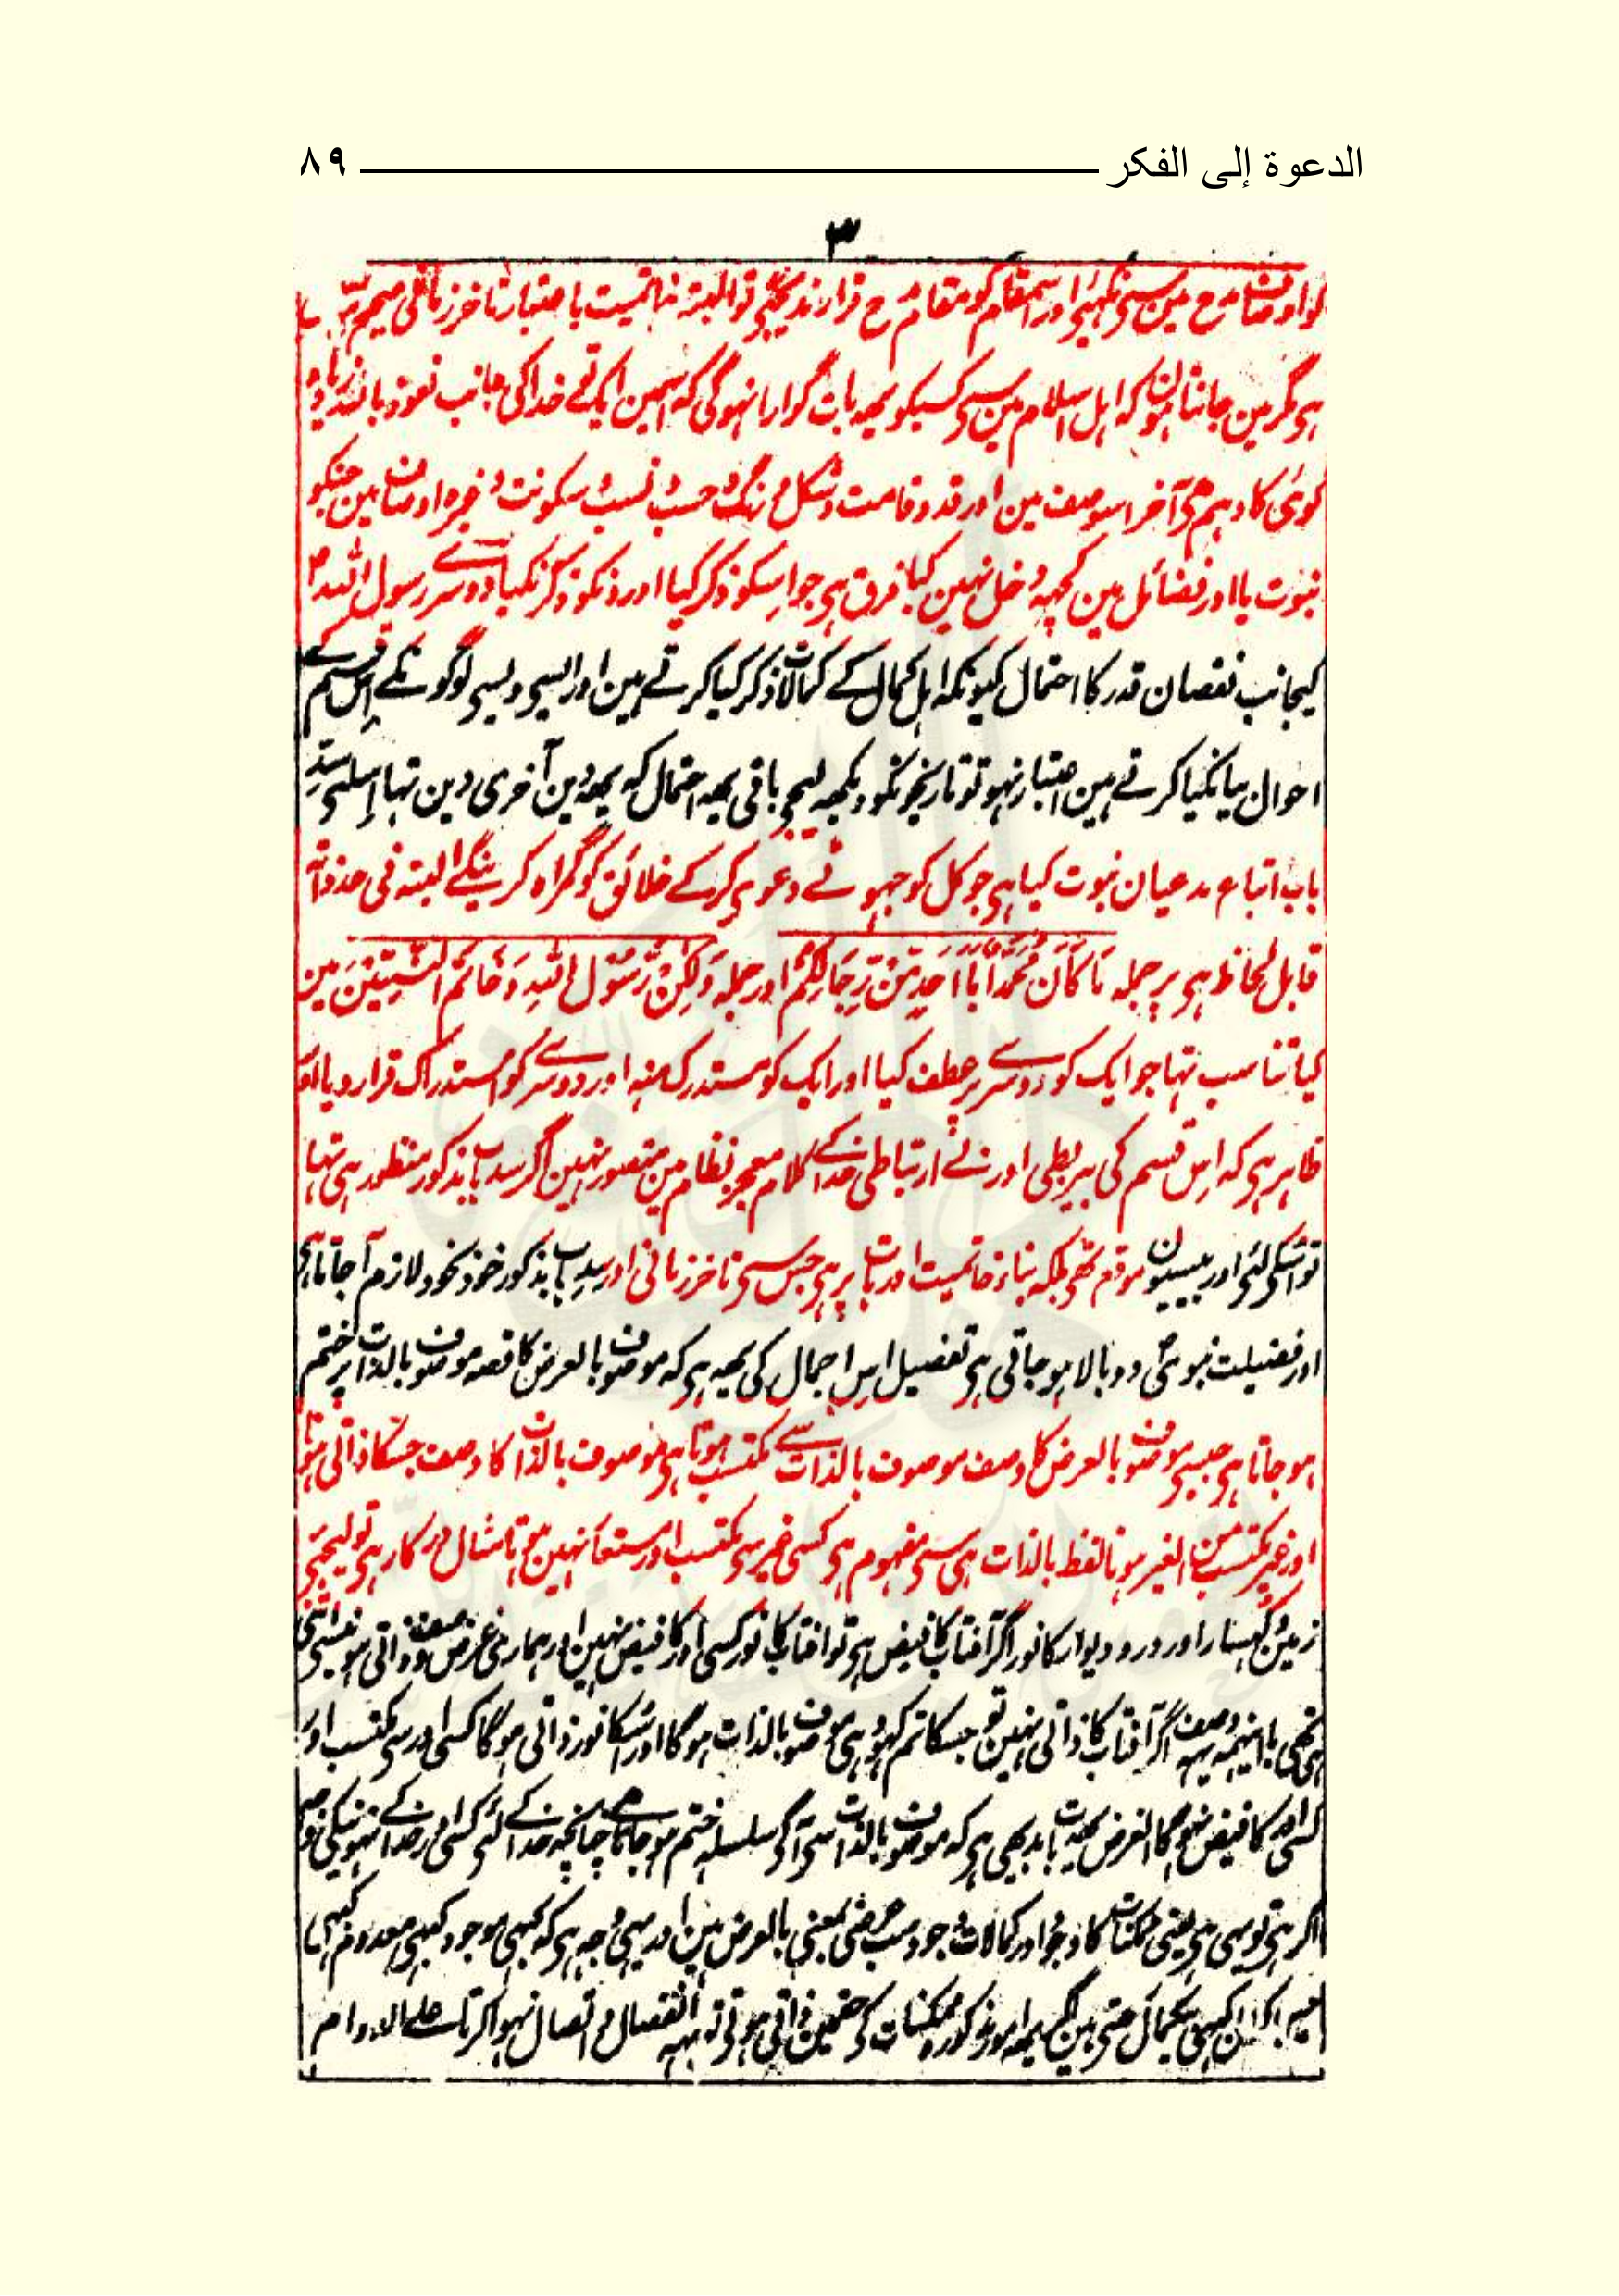 الدعوة إلى الفكر ٨٩
٣
کو اوصاف مدح مین سی نکہیئی اور اس مقام کو مقام مدح قرار ندیجئیی تو البتہ خاتمیت باعتبار تاخر زمانی صحیح
ہی مگر مین جانتا ہون کہ اہل اسلام مین سی کسیکو یہہ بات گوارا نہوگی کہ اسمین ایک تو خدا کی جانب نعوذ باللہ زیادہ
گوئی کا وہم ہی آخر اس وصف مین اور قد و قامت و شکل و رنگ و حسب و نسب و سکونت وغیرہ اوصاف مین جنکو
نبوت یا اور فضائل مین کچہہ دخل نہین کیا فرق ہی جو اسکو ذکر کیا اور ونکو ذکر نکیا دوسرے رسول اللہ
کیجانب نقصان قدر کا احتمال کیونکہ اہل کمال کے کمالات ذکر کیا کرتے ہین اور ایسی ویسی لوگونکے اس قسم کے
احوال بیانکیا کرتے ہین اعتبار نہو تو تاریخونکو دیکہہ لیجی باقی یہہ احتمال کہ یہہ دین آخری دین تہا اسلئی سدِّ
باب اتباع مدعیان نبوت کیا ہی جو کل کو جہوٹے دعوی کرکے خلائق کو گمراہ کرینگے البتہ فی حد ذاتہ
قابل لحاظ ہی پر جملہ مَا كَانَ مُحَمَّدٌ أَبَا أَحَدٍ مِّن رِّجَالِكُمْ اور جملہ وَلٰكِن رَّسُولَ اللهِ وَخَاتَمَ النَّبِيِّينَ مین
کیا تناسب تہا جو ایک کو دوسرے پر عطف کیا اور ایک کو مستدرک منہ اور دوسرے کو استدراک قرار دیا اور
ظاہر ہی کہ اس قسم کی بیربطی اور بے ارتباطی خدا کے کلام معجز نظام مین متصور نہین اگر سد باب مذکور منظور ہی تہا
تو اسکی لئی اور بیسیون موقع تہی بلکہ بناء خاتمیت اور بات پر ہی جس سی تاخر زمانی اور سد باب مذکور خود بخود لازم آجاتا ہی
اور فضیلت نبوی دوبالا ہو جاتی ہی تفصیل اس اجمال کی یہہ ہی کہ موصوف بالعرض کا قصہ موصوف بالذات پر ختم
ہو جاتا ہی جیسی موصوف بالعرض کا وصف موصوف بالذات سے مکتسب ہوتا ہی موصوف بالذات کا وصف جسکا ذاتی ہونا
اور غیر مکتسب من الغیر ہونا لفظ بالذات ہی سی مفہوم ہی کسی غیر سی مکتسب اور مستعار نہین ہوتا مثال درکار ہی تو لیجئی
زمین و کہسار اور در و دیوار کا نور اگر آفتاب کا فیض ہی تو آفتاب کا نور کسی اور کا فیض نہین اور ہماری غرض وصف ذاتی ہونیسی اتنی
ہی تھی بااینہمہ یہہ وصف اگر آفتاب کا ذاتی نہین تو جسکا تم کہو وہی موصوف بالذات ہوگا اور اسکا نور ذاتی ہوگا کسی اور سی مکتسب اور
کسی اور کا فیض نہوگا الغرض یہہ بات بدیہی ہی کہ موصوف بالذات سی آگی سلسلہ ختم ہو جاتا ہے چنانچہ خدا کے لئی کسی اور خدا کے نہونیکی وجہ
اگر ہی تو یہی ہی یعنی ممکنات کا وجود اور کمالات وجود سب عرضی بمعنی بالعرض ہین اور یہی وجہ ہی کہ کبہی موجود کبہی معدوم کبہی
کبہی باکمال رہتی ہین اگر یہہ امور مذکورہ ممکنات کی حق مین ذاتی ہوتی تو یہہ انفصال و اتصال نہوا کرتا علے الدوام